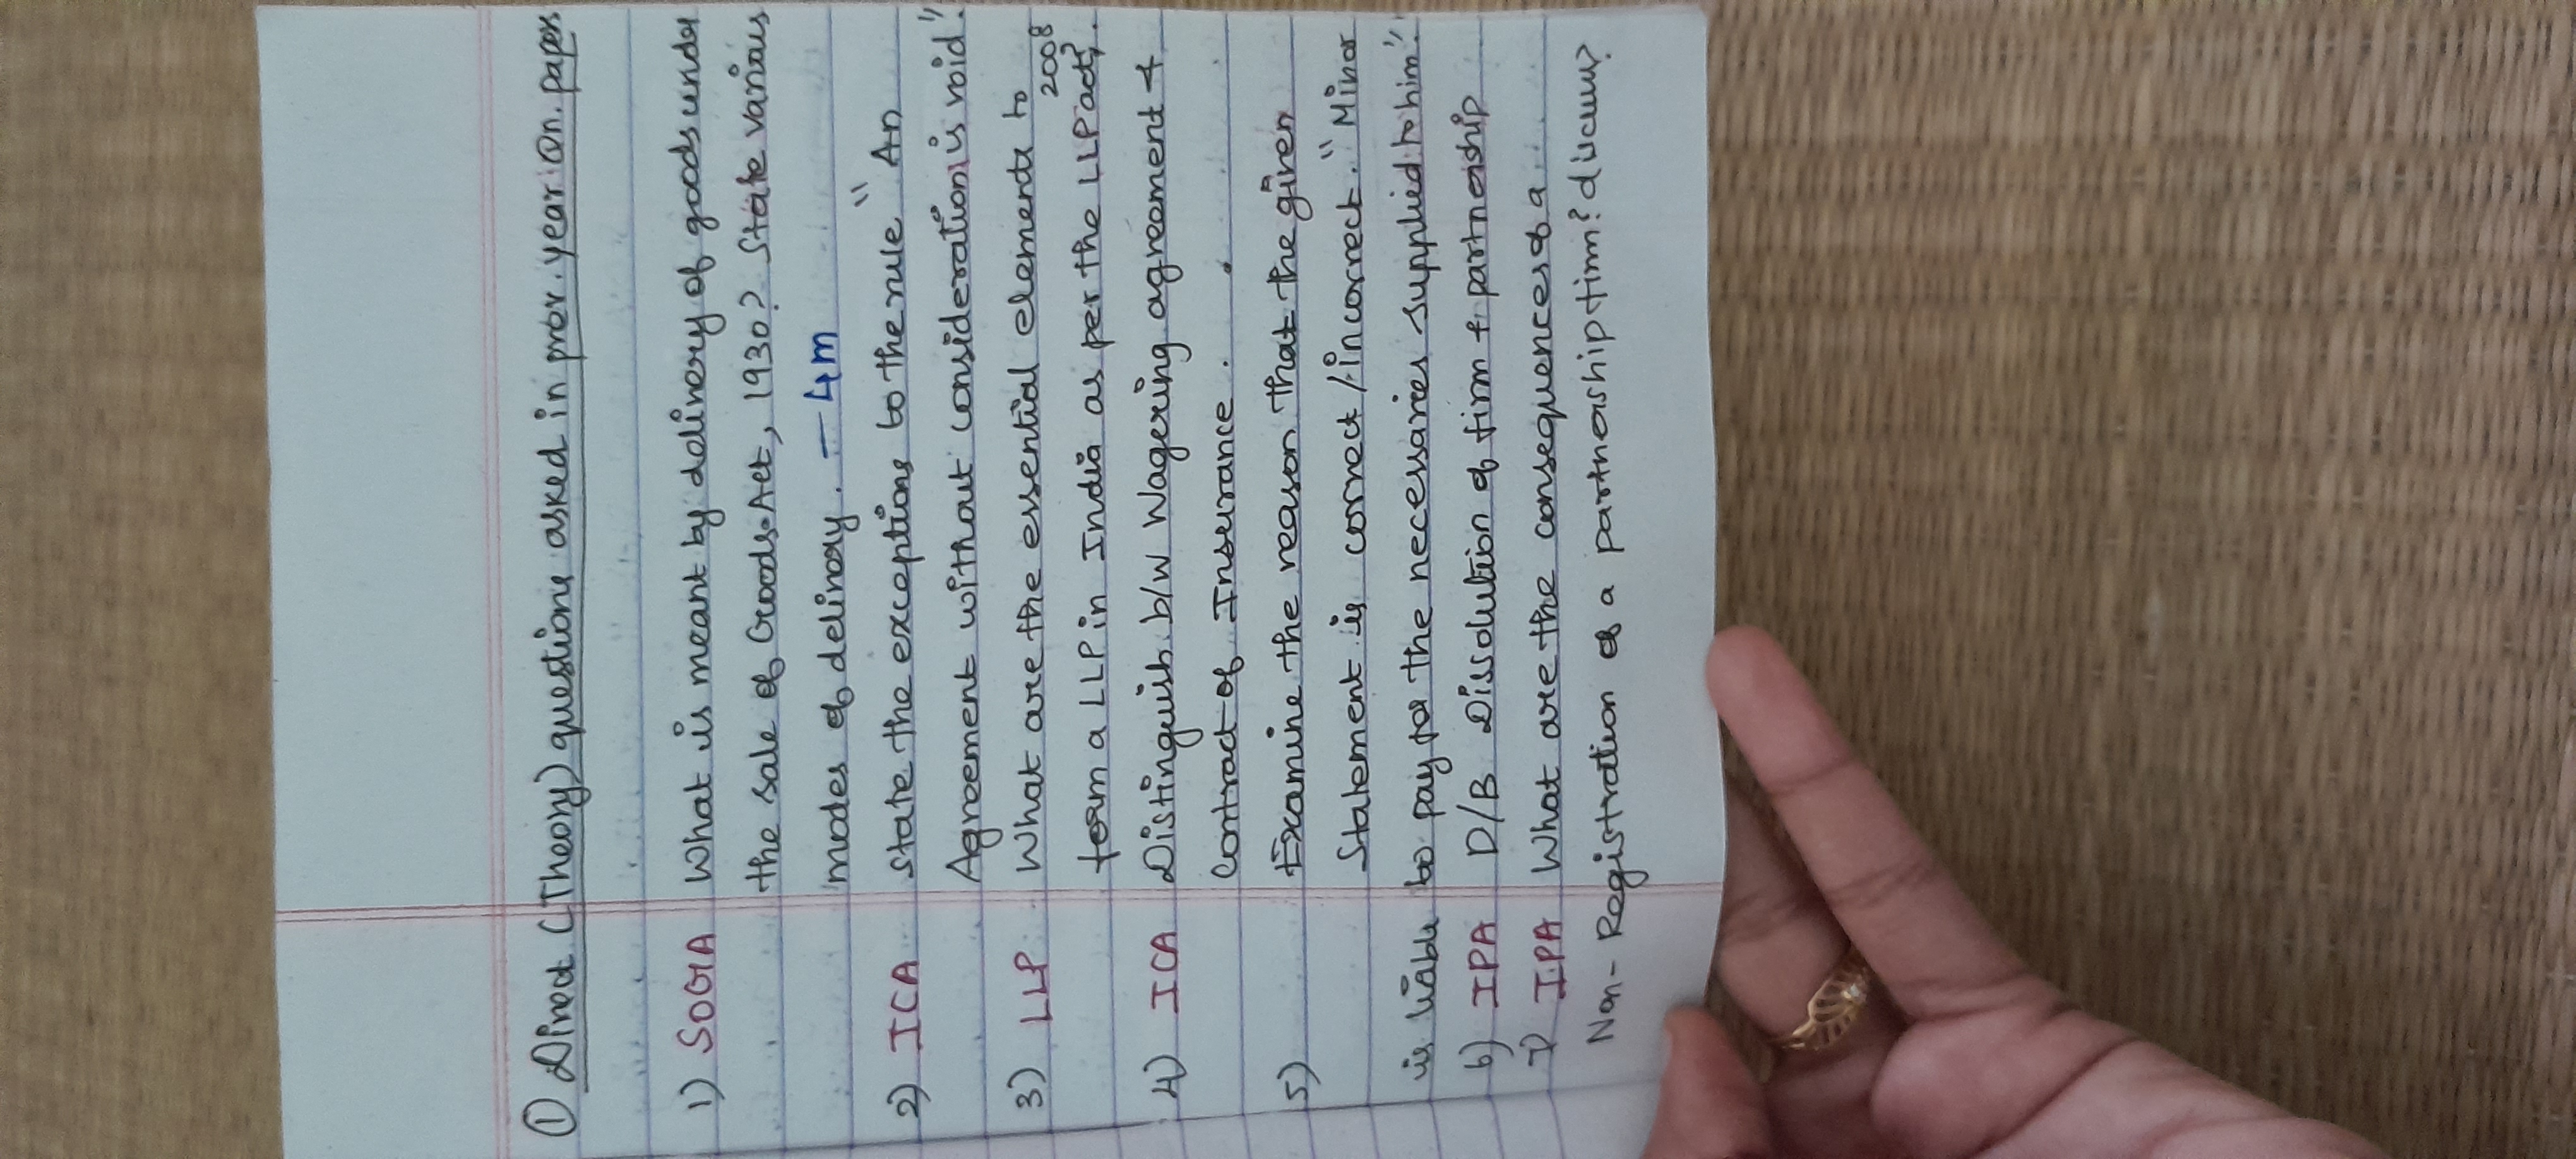 ① Direct (Theory) questions asked in prev. year Qn. papers
1) SOGA What is meant by delivery of goods under
the sale of Goods Act, 1930? State various
modes of delivery. — 4m
2) ICA State the exceptions to the rule "An
Agreement without consideration is void".
3) LLP What are the essential elements to
form a LLP in India as per the LLP act, 2008?
4) ICA Distinguish b/w Wagering agreement &
Contract of Insurance.
5) Examine the reason that the given
Statement is correct/incorrect. "Minor
is liable to pay for the necessaries supplied to him".
6) IPA D/B Dissolution of firm & partnership
7) IPA What are the consequences of a
Non-Registration of a partnership firm? discuss?